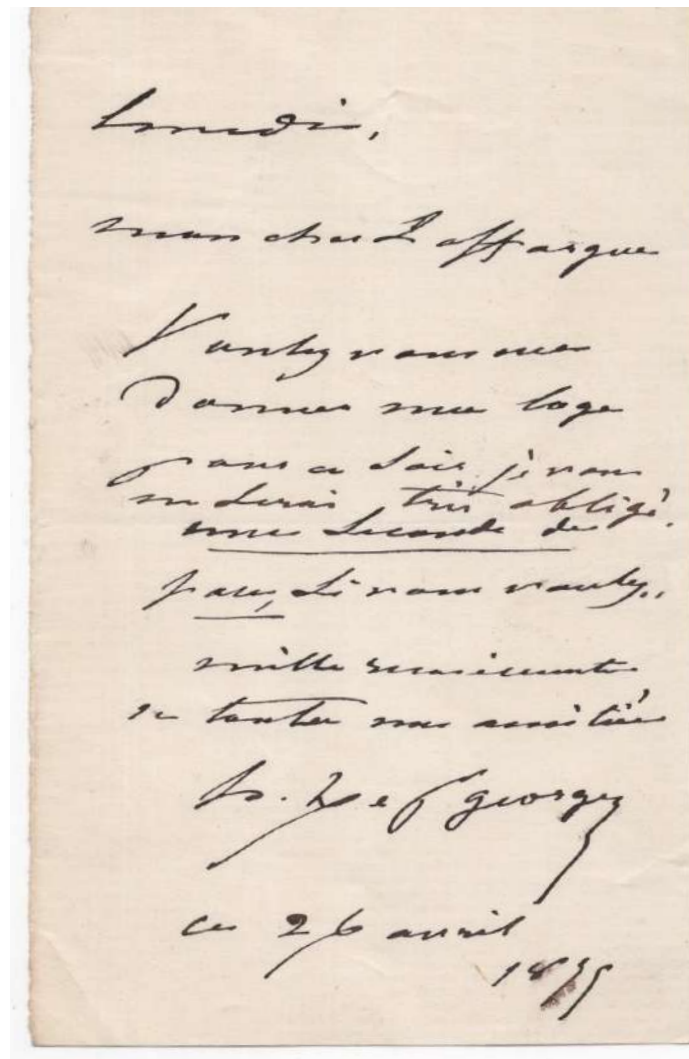 Lundi,
mon cher Laffargue
Voulez vous me
donner une loge
pour ce soir, je vous
en serai très obligé.
une seconde de
face, si vous voulez..
mille remerciements
et toutes mes amitiés
ce 26 avril